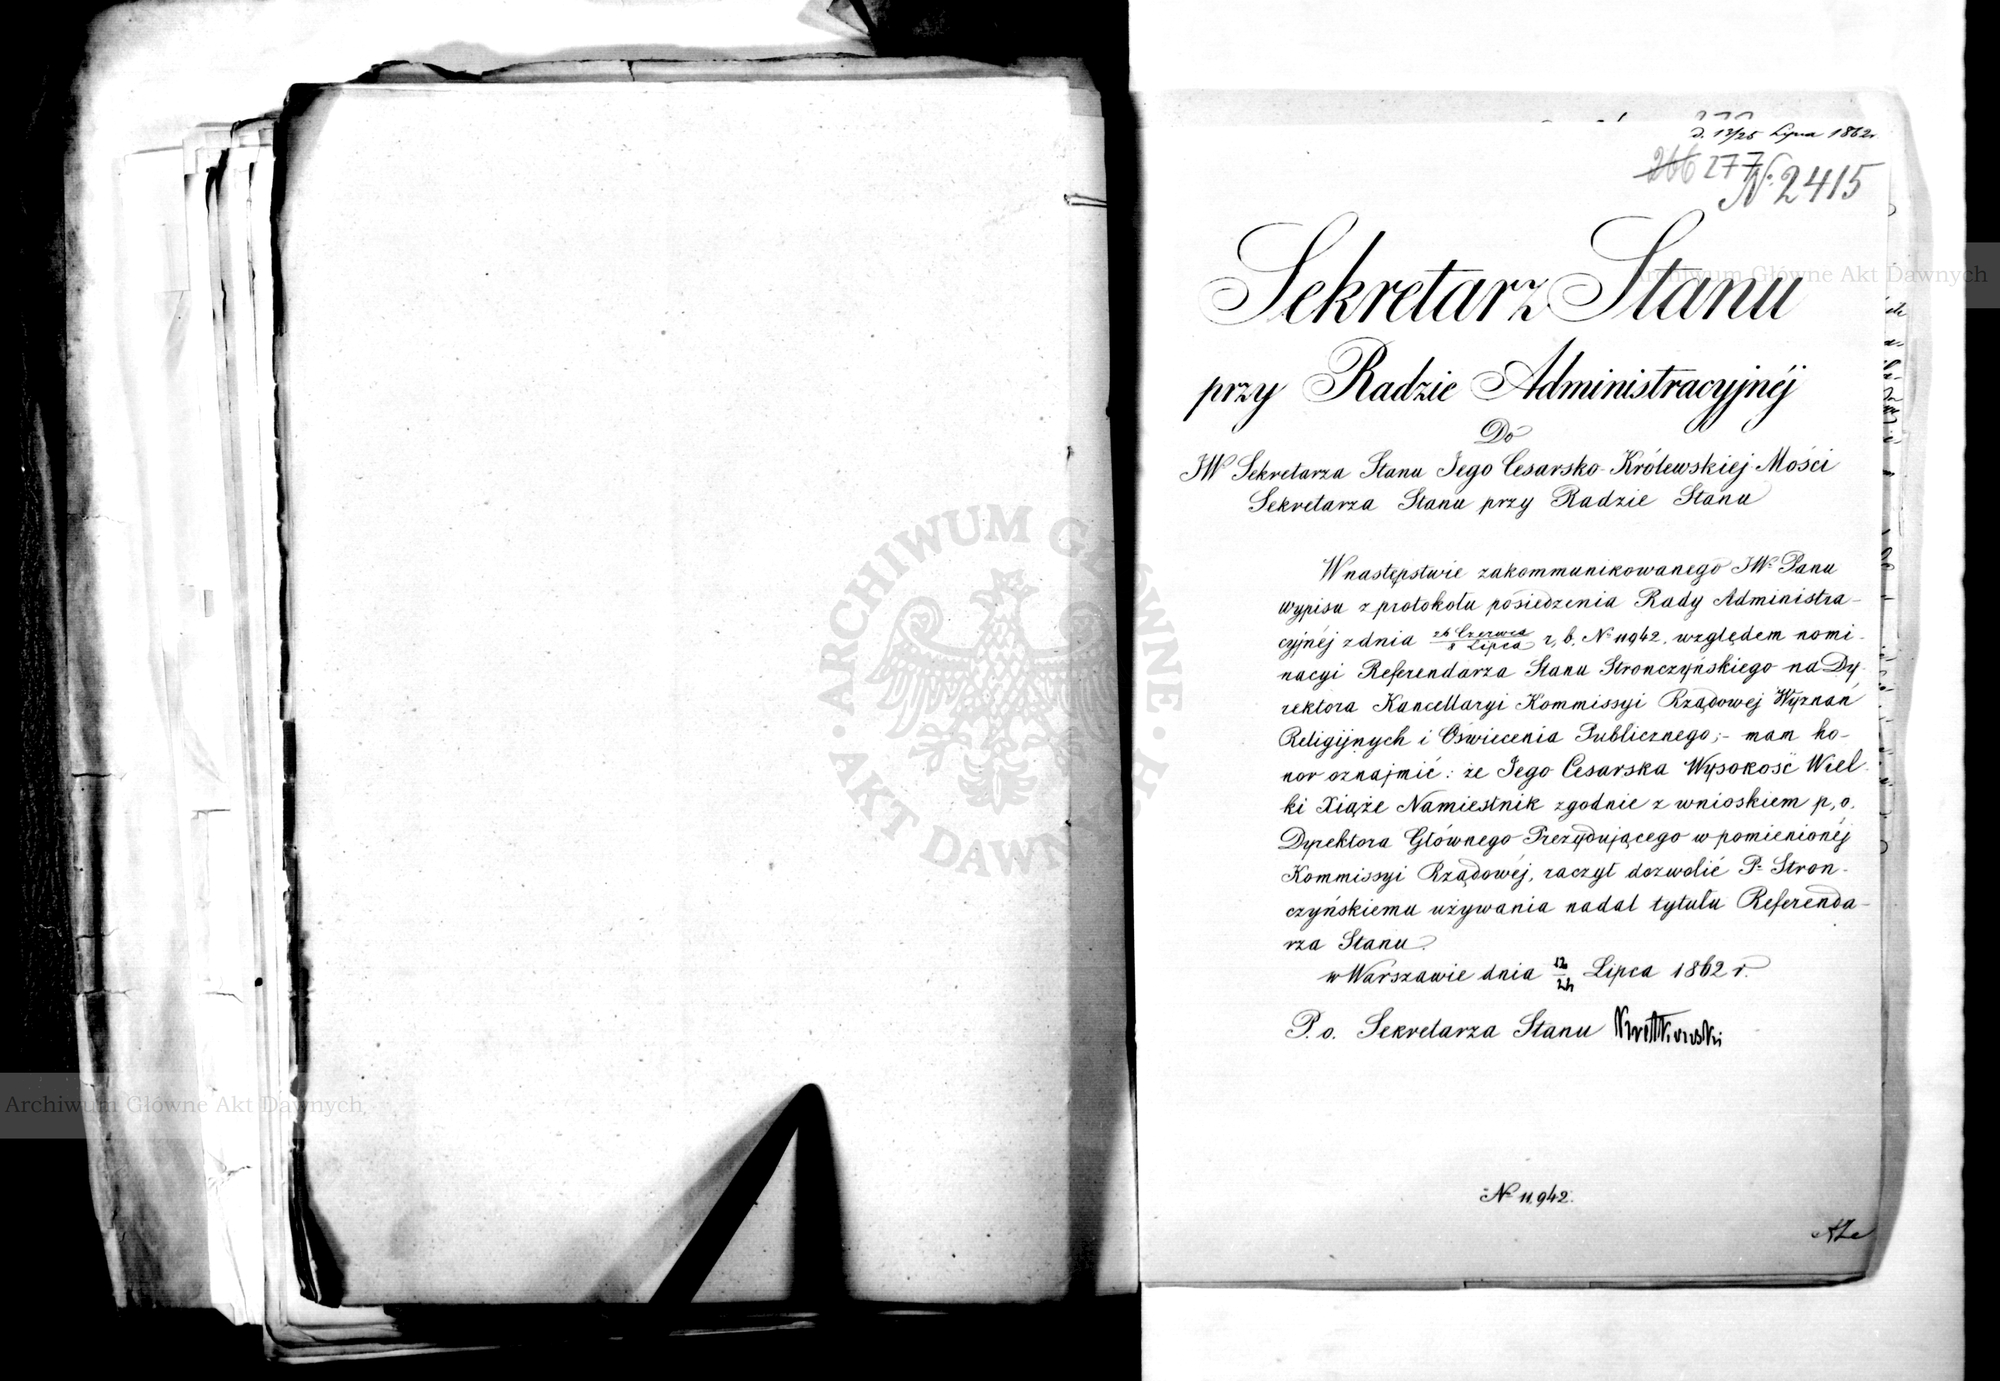 d. 13/25 Lipca 1862 r.
266 277
N. 2415
Sekretarz Stanu
przy Radzie Administracyjnéj
Do
JW Sekretarza Stanu Jego Cesarsko-Królewskiej Mości
Sekretarza Stanu przy Radzie Stanu
W następstwie zakommunikowanego JW. Panu
wypisu z protokołu posiedzenia Rady Administra-
cyjnéj z dnia 26 Czerwca / 8 Lipca r. b. No 11942. względem nomi-
nacyi Referendarza Stanu Stronczyńskiego na Dy-
rektora Kancellaryi Kommissyi Rządowej Wyznań
Religijnych i Oświecenia Publicznego;- mam ho-
nor oznajmić: że Jego Cesarska Wysokość Wiel-
ki Xiąże Namiestnik zgodnie z wnioskiem p. o.
Dyrektora Głównego Prezydującego w pomienionéj
Kommissyi Rządowéj, raczył dozwolić P. Stron-
czyńskiemu używania nadal tytułu Referenda-
rza Stanu.
w Warszawie dnia 12/24 Lipca 1862 r.
P. o. Sekretarza Stanu
No 11,942.
Archiwum Główne Akt Dawnych
Archiwum Główne Akt Dawnych
ARCHIWUM GŁÓWNE
AKT DAWNYCH